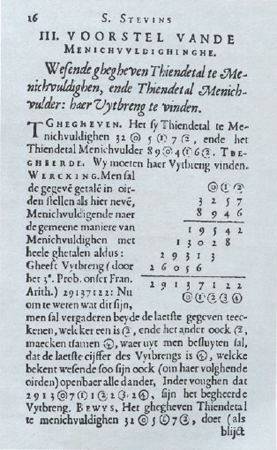 16 S. STEVINS
III. VOORSTEL VANDE
MENICHVULDIGHINGHE.
Wesende ghegheven Thiendetal te Me-
nichvuldighen, ende Thiendetal Menich-
vulder: haer Vytbreng te vinden.
TGHEGHEVEN. Het sy Thiendetal te Me-
nichvuldighen 32⓪5①7②, ende het
Thiendetal Menichvulder 89⓪4①6②. TBE-
GHEERDE. Wy moeten haer Vytbreng vinden.
WERCKING. Men sal
de gegevē getalē in oir-
den stellen als hier nevē,
Menichvuldigende naer
de gemeene maniere van
Menichvuldighen met
heele ghetalen aldus:
Gheeft Vytbreng (door
het 3e. Prob. onser Fran.
Arith.) 29137122: Nu
⓪①②
3257
8946
19542
13028
29313
26056
29137122
⓪①②③④
om te weten wat dit sijn,
men sal vergaderen beyde de laetste gegeven teec-
kenen, welcker een is ②, ende het ander oock ②,
maecken tsamen ④, waer uyt men besluyten sal,
dat de laetste cijffer des Vytbrengs is ④, welcke
bekent wesende soo sijn oock (om haer volghende
oirden) openbaer alle dander, Inder voughen dat
2913⓪7①1②2③2④, sijn het begheerde
Vytbreng. BEWYS. Het ghegheven Thiendetal
te menichvuldighen 32⓪5①7②, doet (als
blijct